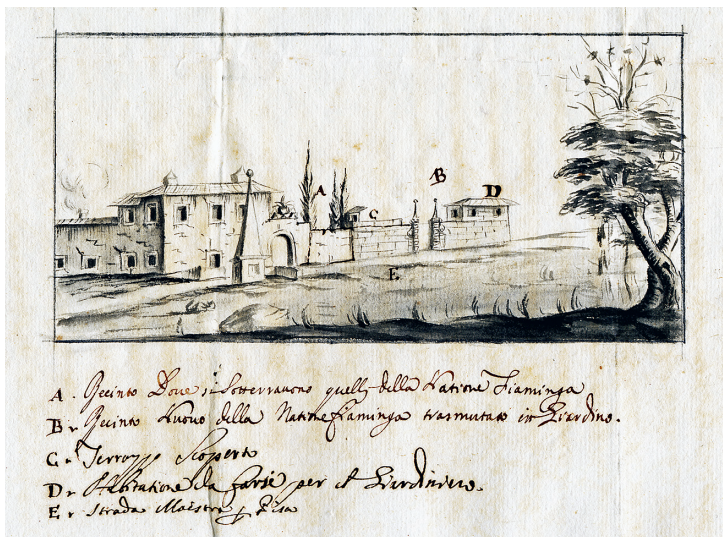 A
B
D
C
E
A. Recinto Dove si Sotterravono quelli della Natione Fiaminga
B. Recinto Nuovo della Natione fiaminga trasmutato in Giardino.
C. Terrazzo Scoperto
D. Habitatione da farsi per il Giardiniero.
E. Strada Maestra Pisa